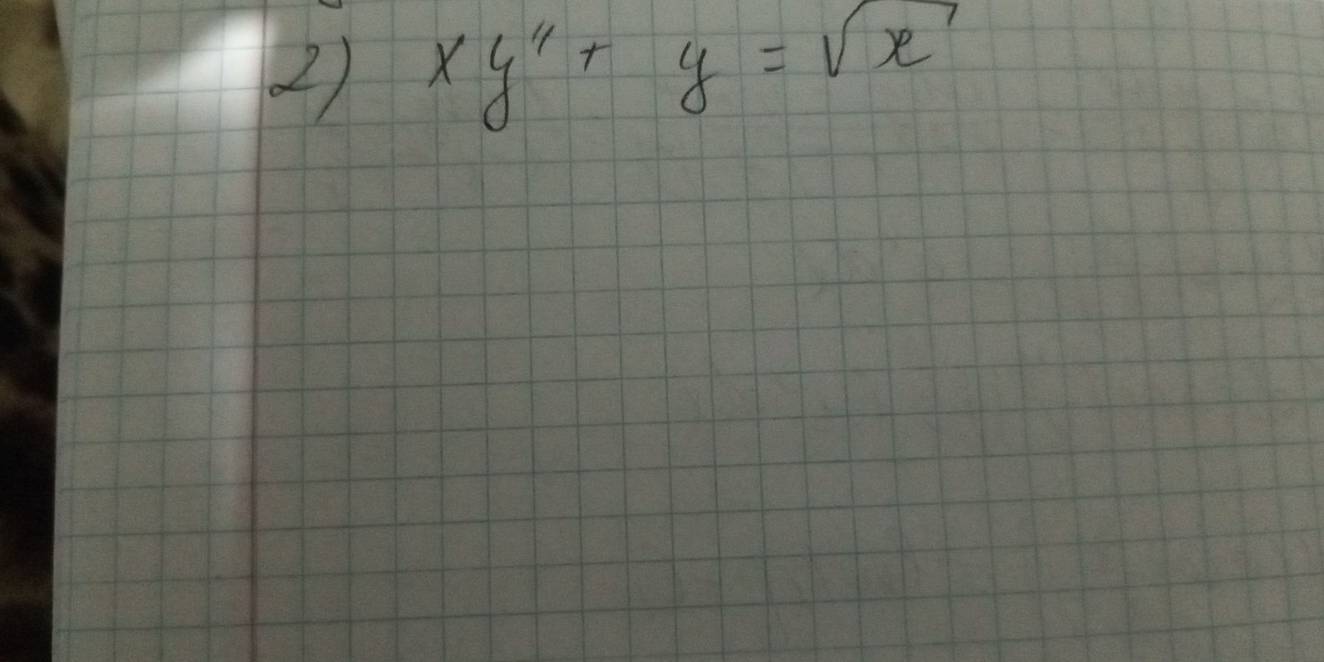 2) xy" + y = √x